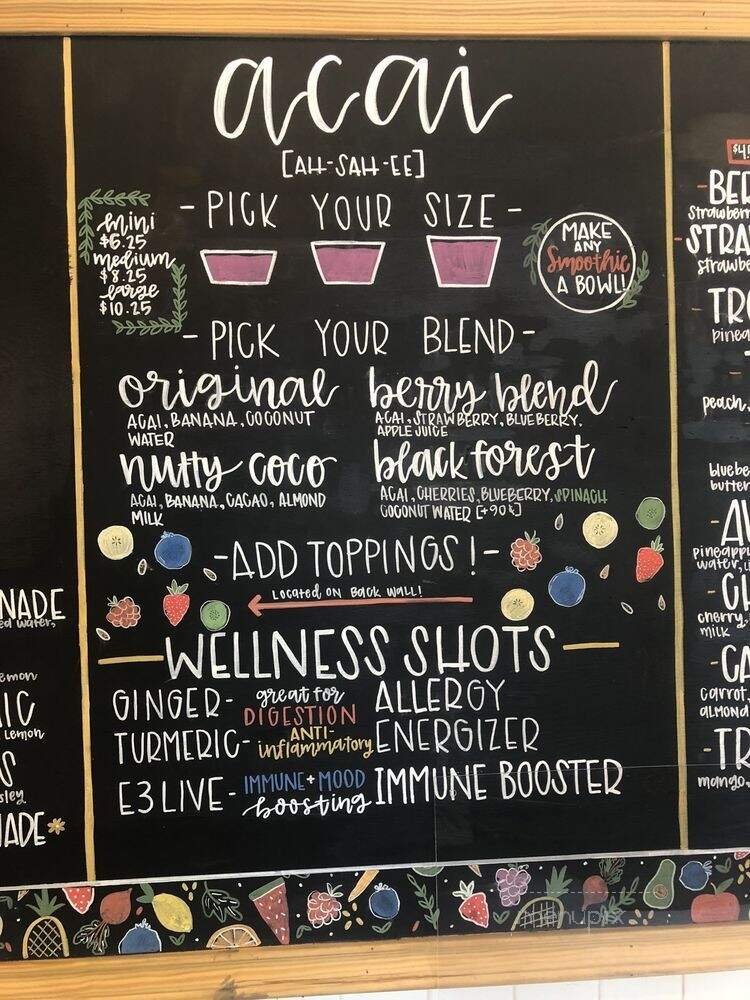 acai
[AH-SAH-EE]
- PICK YOUR SIZE -
mini
$6.25
medium
$8.25
large
$10.25
MAKE
ANY
Smoothie
A BOWL!
- PICK YOUR BLEND -
original
ACAI, BANANA, COCONUT
WATER
berry blend
ACAI, STRAWBERRY, BLUEBERRY,
APPLE JUICE
nutty coco
ACAI, BANANA, CACAO, ALMOND
MILK
black forest
ACAI, CHERRIES, BLUEBERRY, SPINACH
COCONUT WATER [+90¢]
- ADD TOPPINGS! -
Located on Back Wall!
WELLNESS SHOTS
GINGER - great for
DIGESTION
TURMERIC - ANTI-
inflammatory
E3 LIVE - IMMUNE + MOOD
boosting
ALLERGY
ENERGIZER
IMMUNE BOOSTER
NADE
ed water,
emon
IC
Lemon
S
sley
ADE*
-BER
strawberr
-STRA
strawbe
TRO
pinea
peach,
bluebe
butter
-AV
pineappl
water, Li
-CH
cherry,
milk
-CA
carrot,
almond
-TR
mango,
menupix